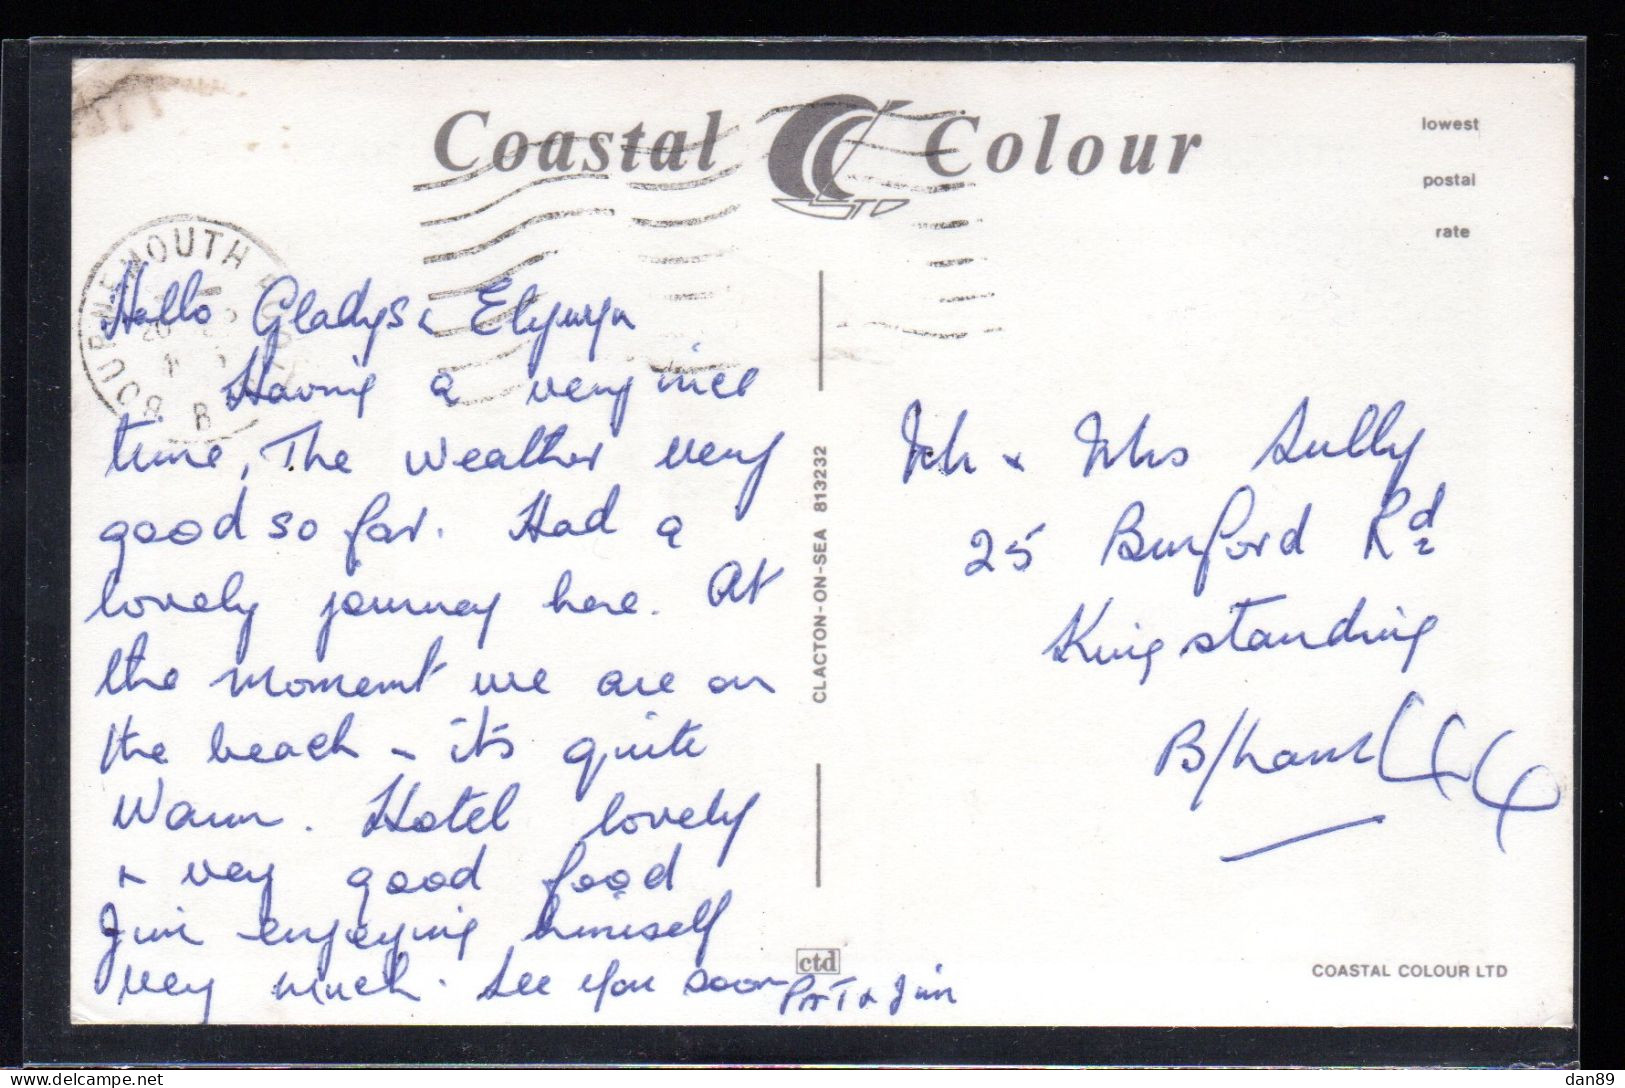 Coastal Colour
lowest
postal
rate
BOURNEMOUTH
B
Hello Gladys & Elywyn
Having a very nice
time, The weather very
good so far. Had a
lovely journey here. At
the moment we are on
the beach - it's quite
Warm. Hotel lovely
& very good food
Jim enjoying himself
very much. See you soon
Pat & Jim
CLACTON-ON-SEA 813232
Mr & Mrs Sully
25 Burford Rd
Kingstanding
B/ham 44
ctd
COASTAL COLOUR LTD
delcampe.net
dan89